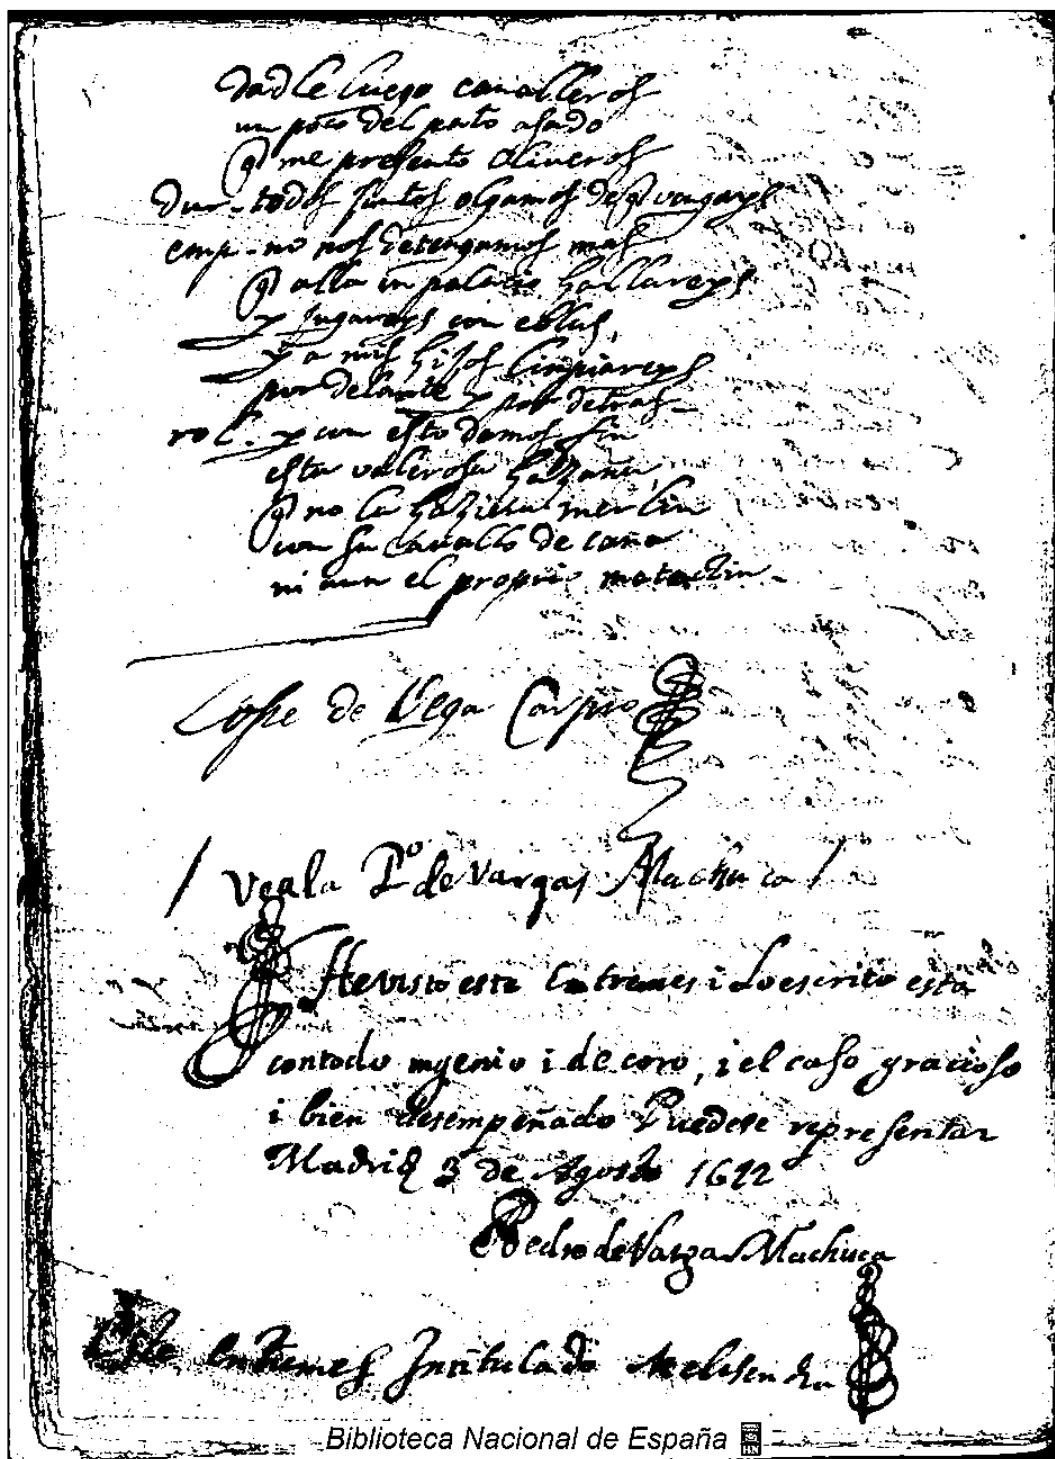 dadle luego cavalleros
un poco del pato asado
q me presento oliveros
dur - todos juntos olgamos de q vengays
emp - no nos detengamos mas
q alla in palacio hallareys
y jugareys con ellas,
y a mis hijos limpiareys
por delante y por detras -
rol - y con esto damos fin
esta valerosa hazaña,
q no la haziera merlin
con su cavallo de caña
ni aun el proprio matachin -
Lope de Vega Carpio
/ Veala Pº de Vargas Machuca /
He visto este Entremes i lo escrito esta
con todo ingenio i decoro, i el caso gracioso
i bien desempeñado Puedese representar
Madrid 3 de Agosto 1622
Pedro de Vargas Machuca
Este entremes Intitulado Melisendra
Biblioteca Nacional de España